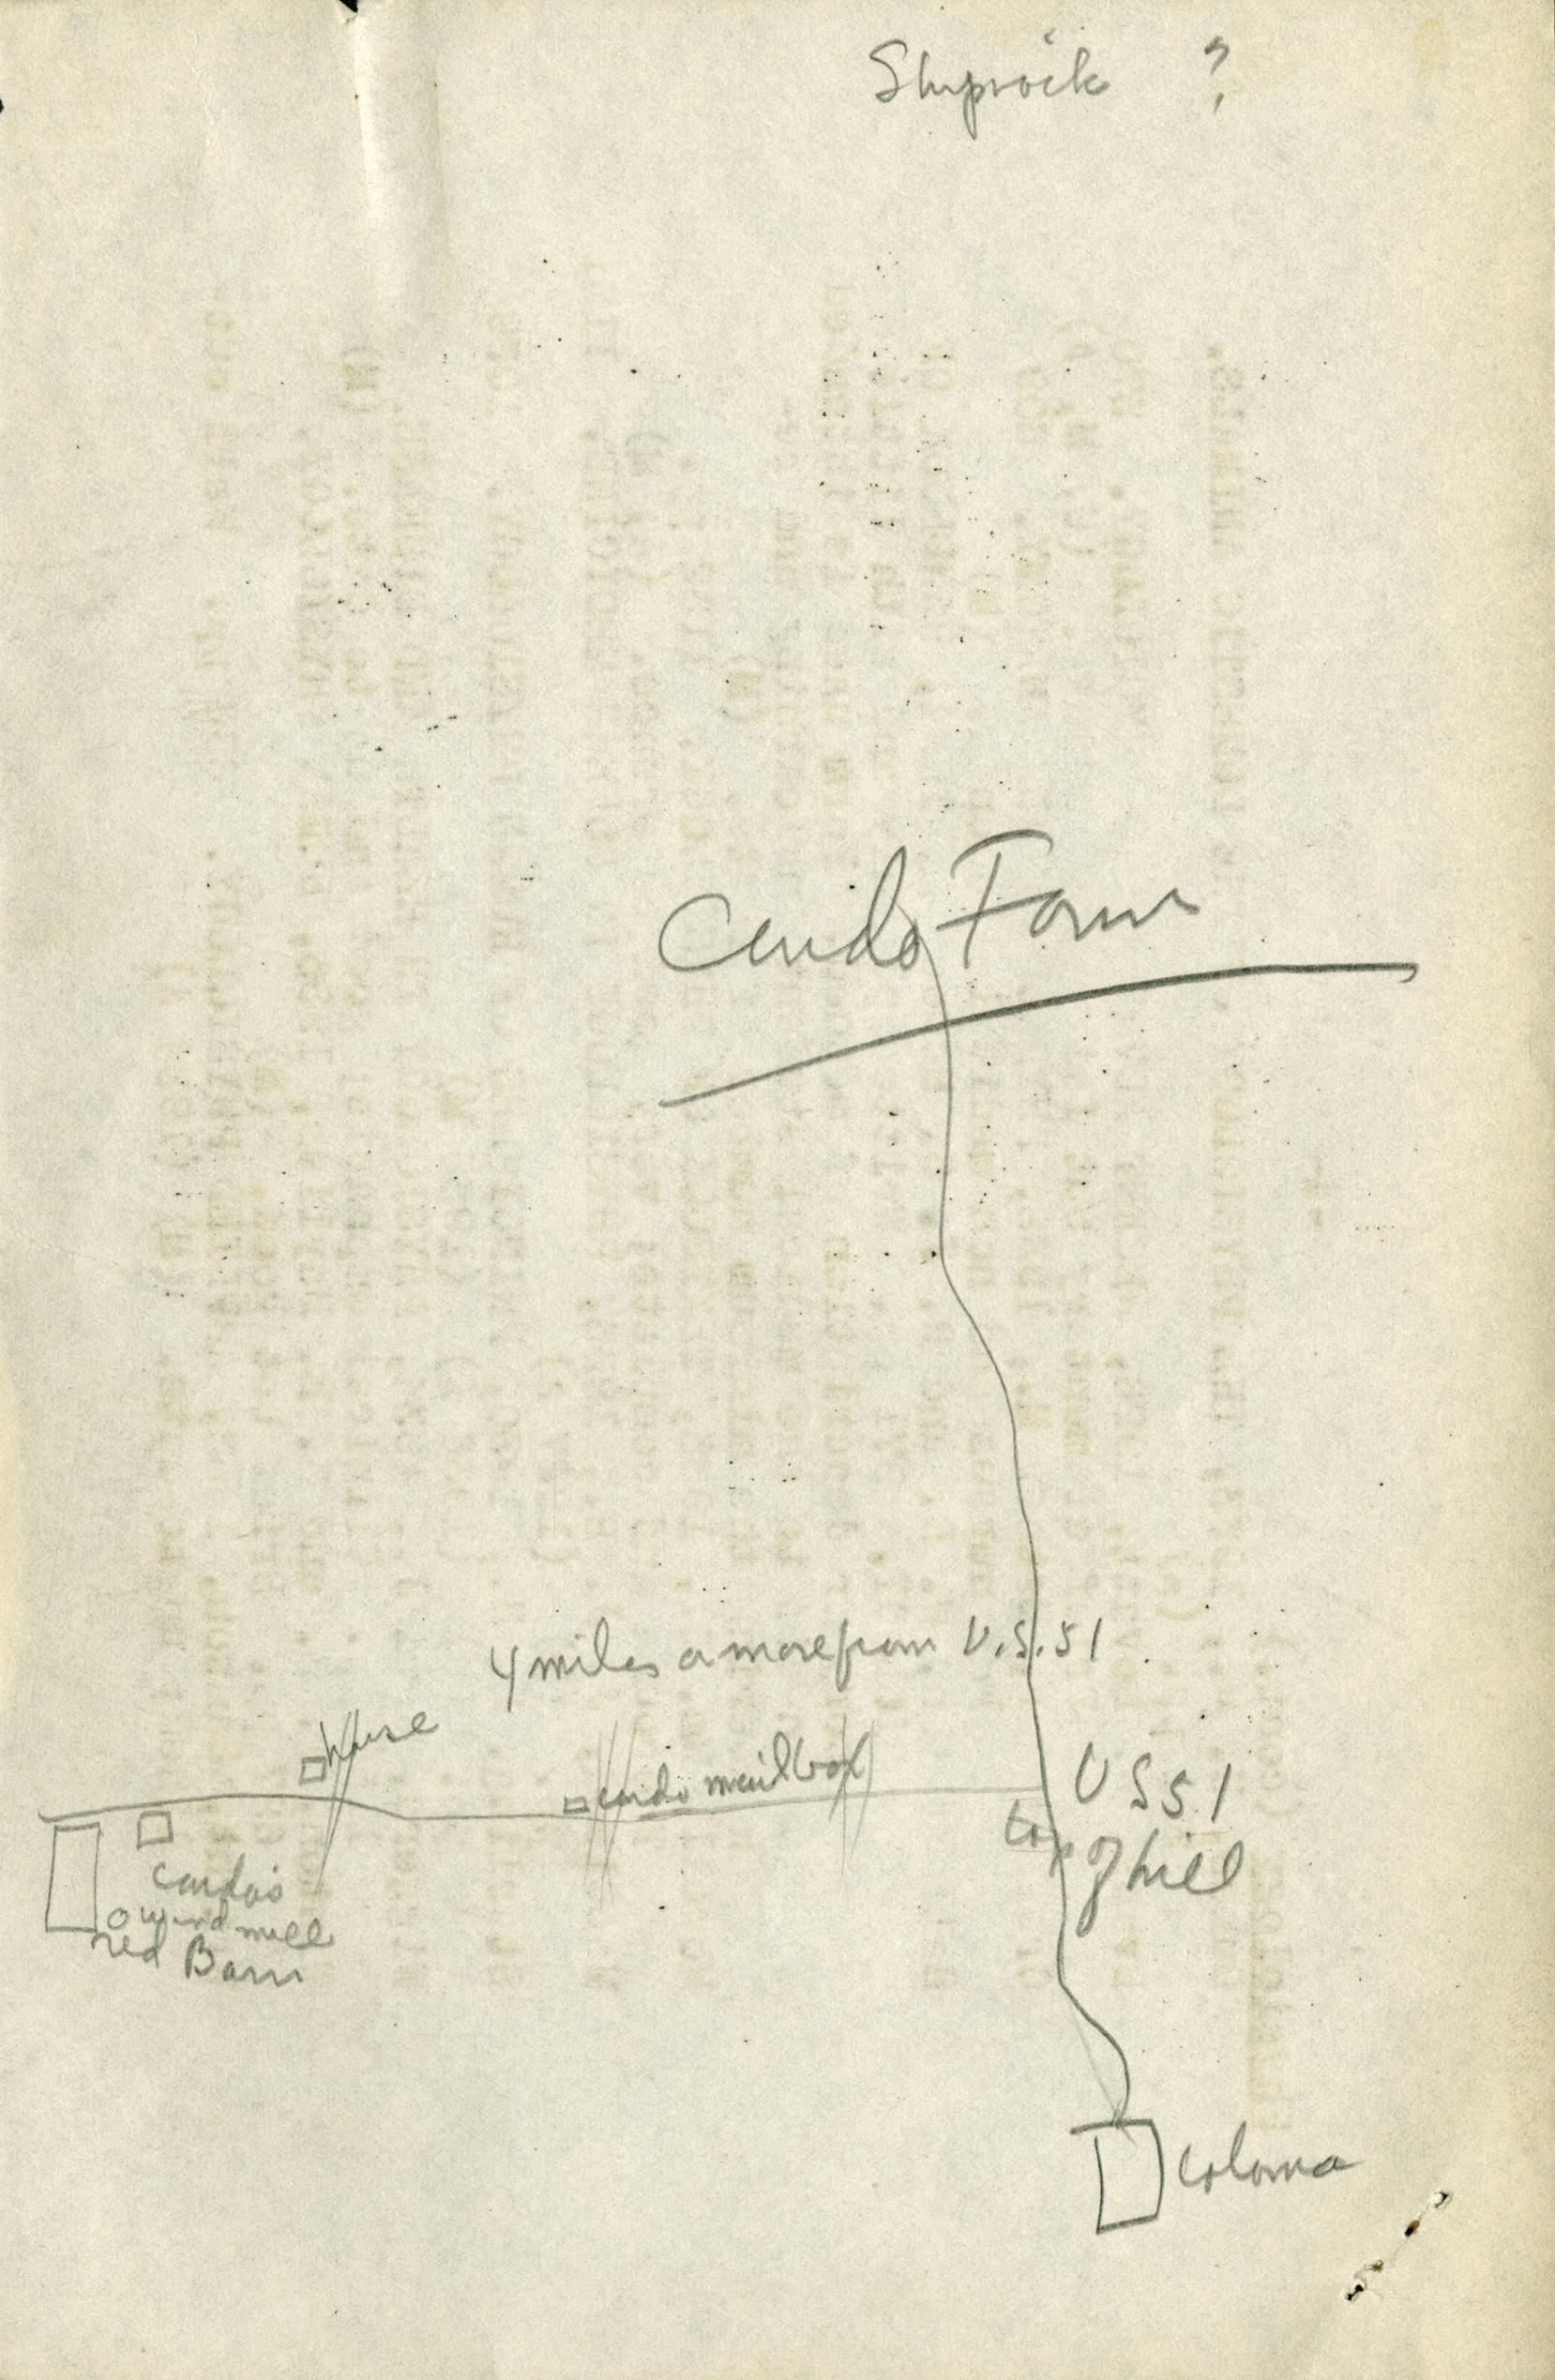 Shiprock ?
Cundo Farm
4 miles or more from U.S. 51
house
Cundo mailbox
US 51
top of hill
Cundo's
o windmill
red Barn
Coloma